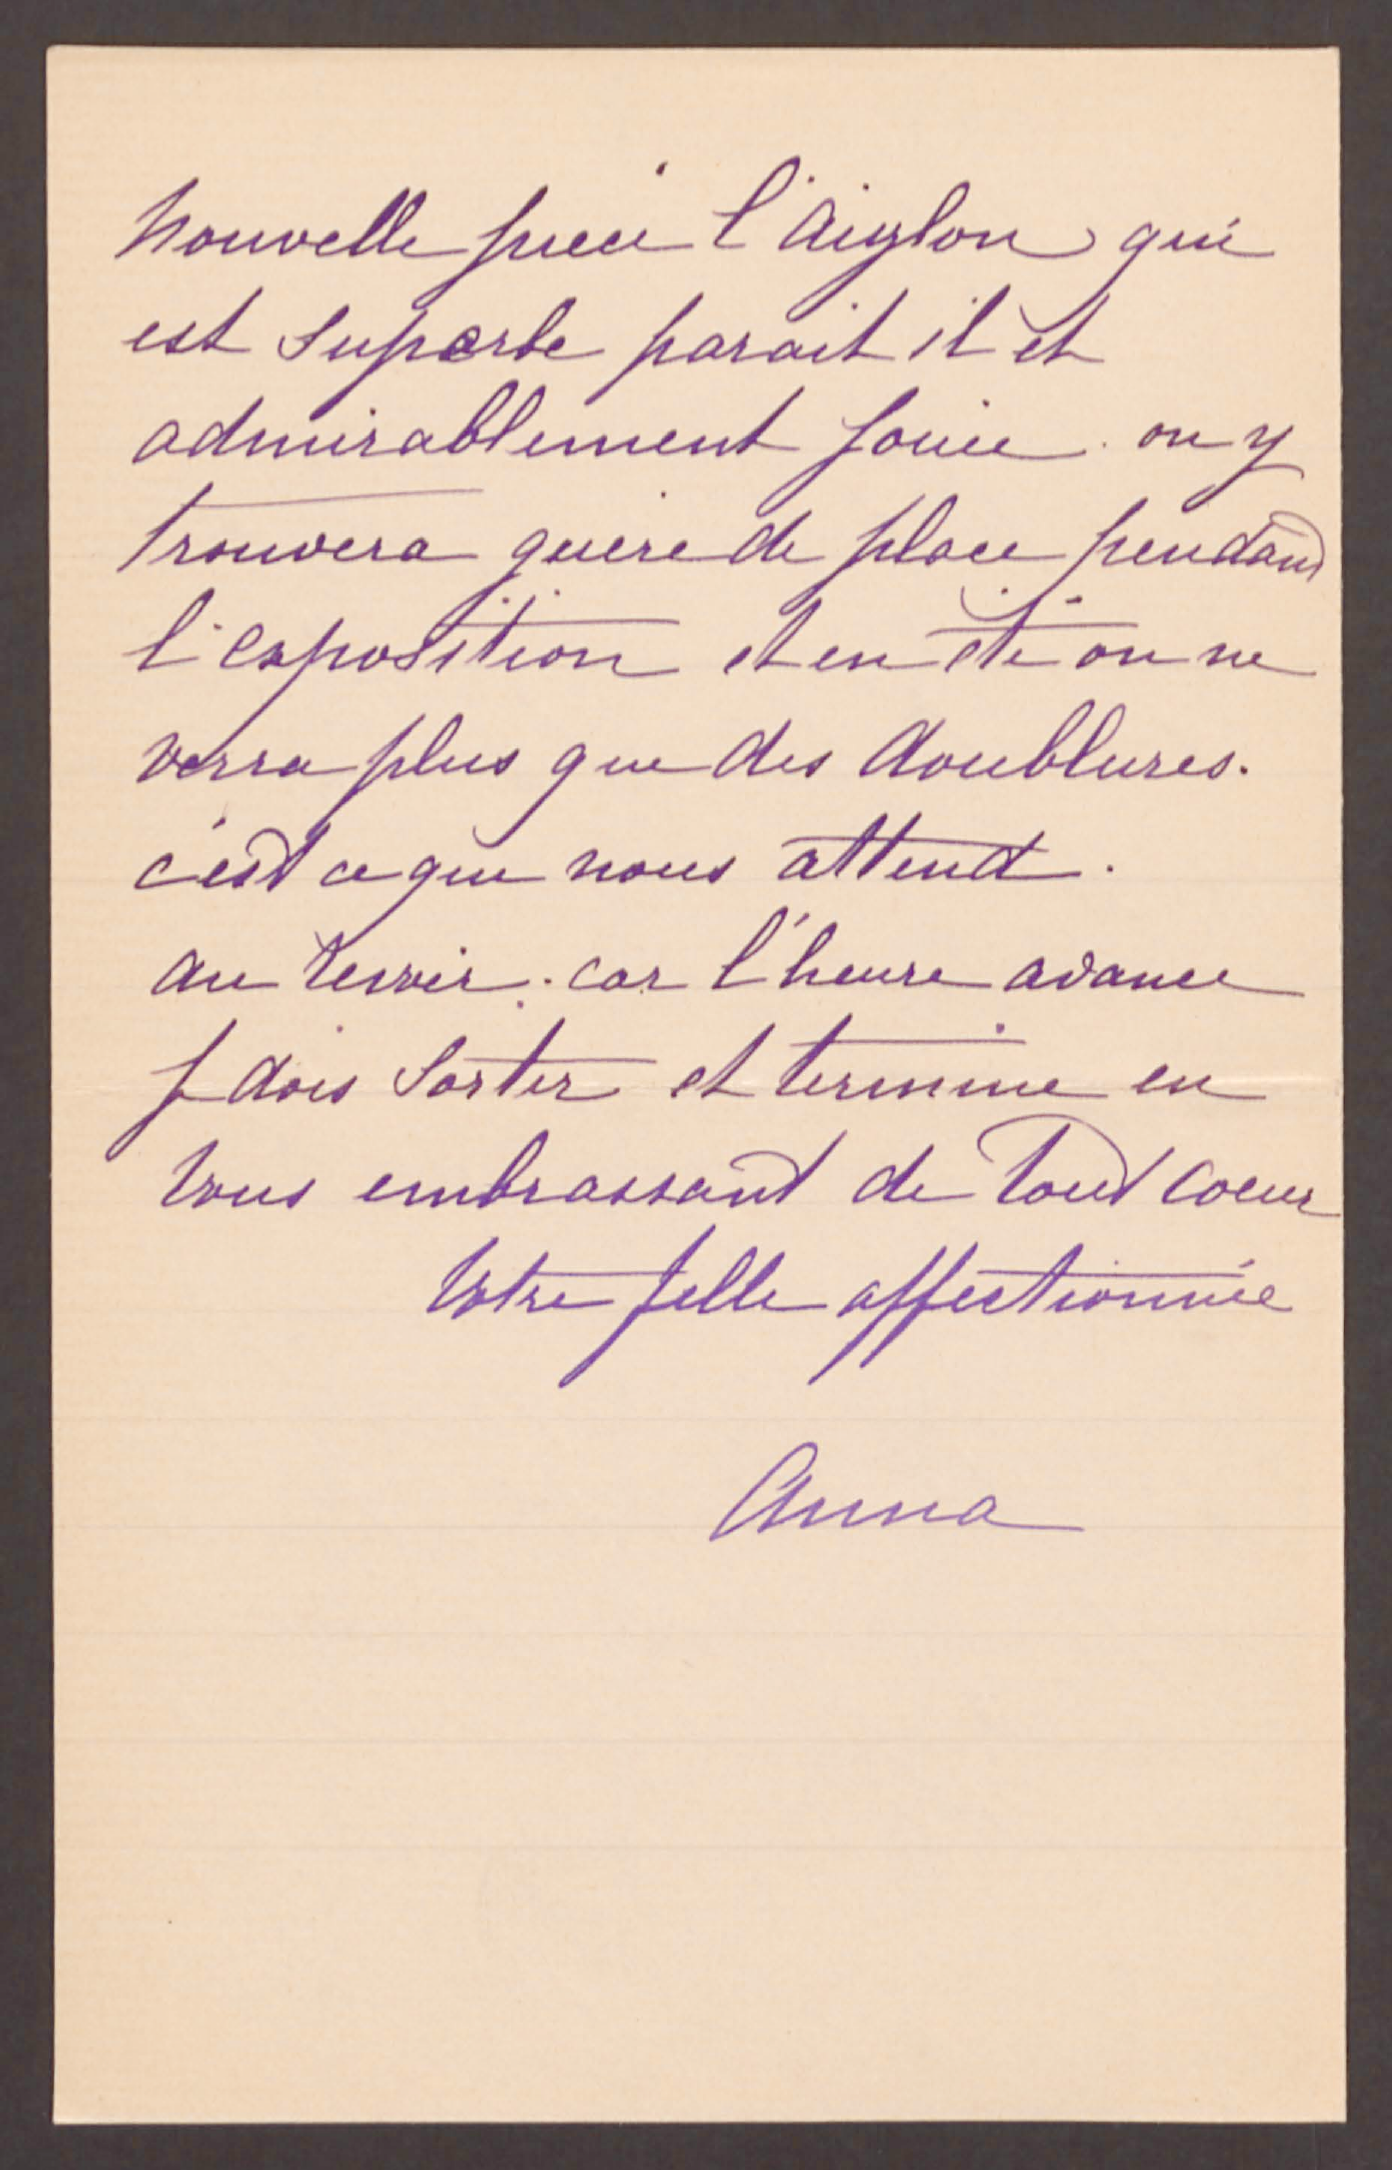 nouvelle pièce l'aiglon qui
est superbe parait il et
admirablement jouée. on y
trouvera guere de place pendant
l'exposition et en été on ne
verra plus que des doublures.
c'est ce que nous attend.
au revoir. car l'heure avance
je dois sortir et termine en
vous embrassant de tout coeur
Votre fille affectionnée
Anna